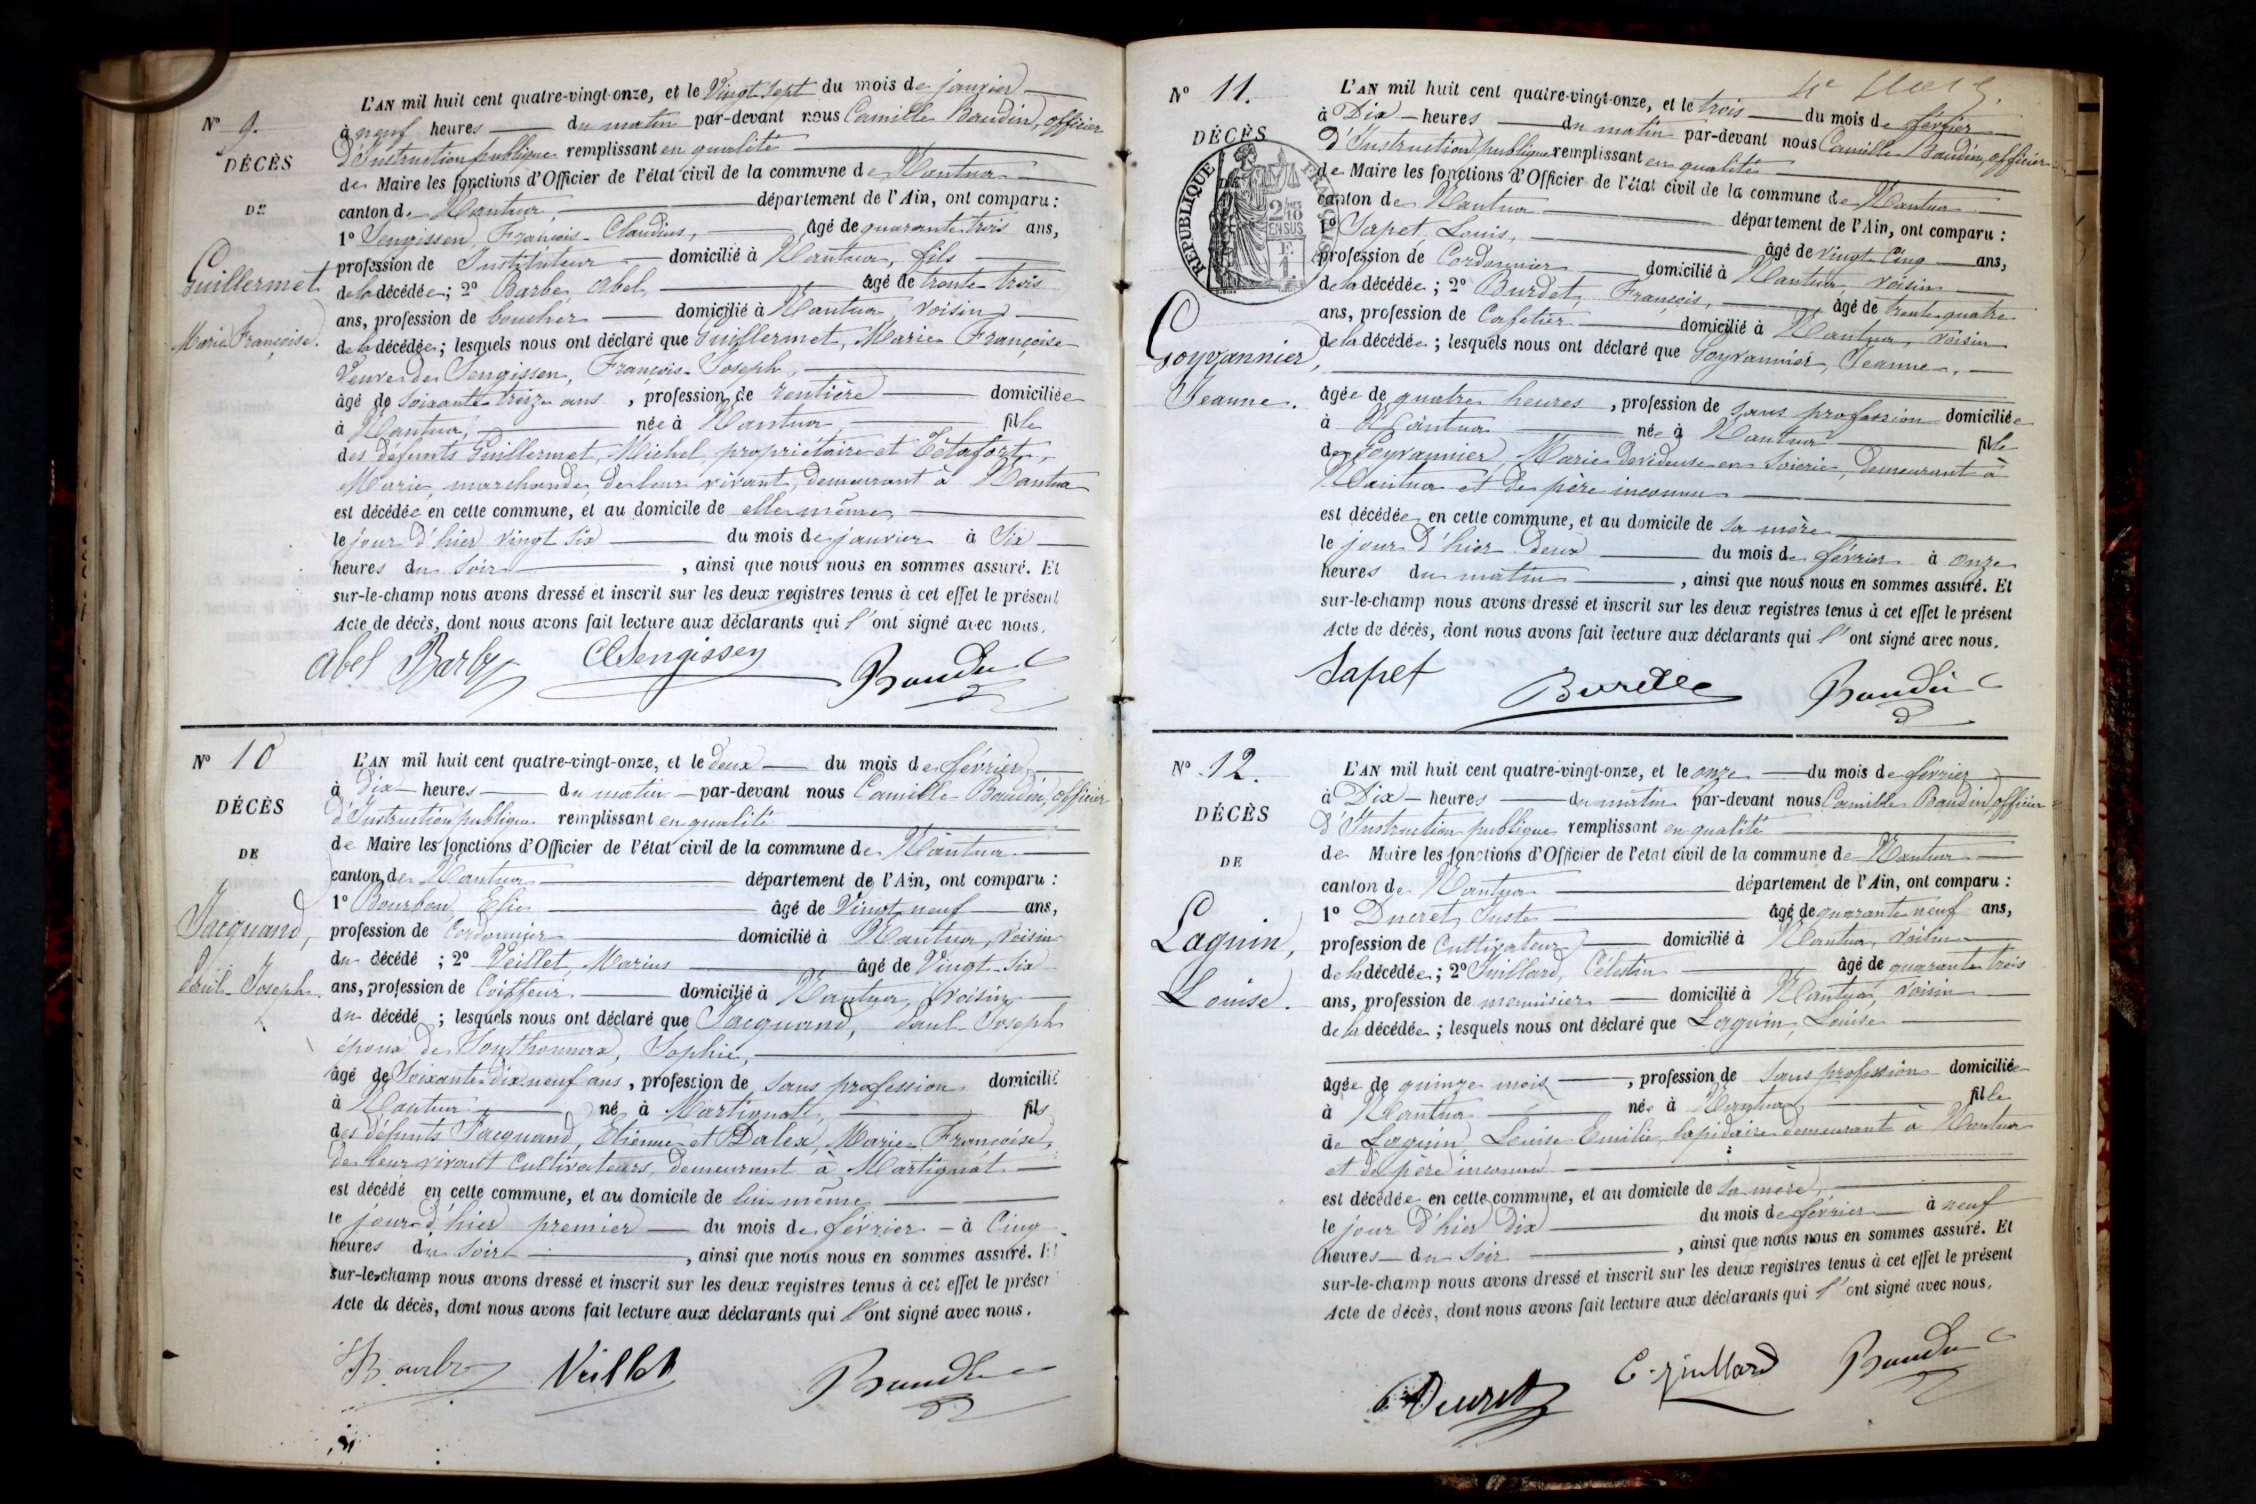 N° 9.
DÉCÈS
DE
Guillermet
Marie Françoise.
L'AN mil huit cent quatre-vingt-onze, et le Vingt sept du mois de janvier
à neuf heures du matin par-devant nous Camille Baudin, officier
d'Instruction publique remplissant en qualité
de Maire les fonctions d'Officier de l'état civil de la commune de Nantua
canton de Nantua, département de l'Ain, ont comparu :
1° Sengissen, François-Claudius, âgé de quarante trois ans,
profession de Instituteur domicilié à Nantua, fils
de la décédée ; 2° Barbe Abel, âgé de trente-trois
ans, profession de boucher domicilié à Nantua, voisin
de la décédée ; lesquels nous ont déclaré que Guillermet, Marie Françoise
Veuve de Sengissen, François-Joseph,
âgé de Soixante treize ans , profession de rentière domiciliée
à Nantua, née à Nantua fille
des défunts Guillermet, Michel, propriétaire et
Marie, marchande, de leur vivant, demeurant à Nantua
est décédée en cette commune, et au domicile de elle même,
le jour d'hier vingt six du mois de janvier à Six
heures du soir , ainsi que nous nous en sommes assuré. Et
sur-le-champ nous avons dressé et inscrit sur les deux registres tenus à cet effet le présent
Acte de décès, dont nous avons fait lecture aux déclarants qui l'ont signé avec nous.
abel Barbe Cl Sengissen Baudin
N° 10
DÉCÈS
DE
Jacquand,
Paul-Joseph.
L'AN mil huit cent quatre-vingt-onze, et le deux du mois de février
à Dix heures du matin par-devant nous Camille Baudin, officier
d'Instruction publique remplissant en qualité
de Maire les fonctions d'Officier de l'état civil de la commune de Nantua
canton de Nantua département de l'Ain, ont comparu :
1° Bourbon, âgé de Vingt neuf ans,
profession de Cordonnier domicilié à Nantua, voisin
du décédé ; 2° Veillet, Marius âgé de Vingt-Six
ans, profession de Coiffeur domicilié à Nantua, voisin
du décédé ; lesquels nous ont déclaré que Jacquand, Paul-Joseph
époux de Sonthonnax, Sophie,
âgé de Soixante-dix neuf ans , profession de sans profession domicilié
à Nantua né à Martignat, fils
des défunts Jacquand, Etienne et Dalex, Marie-Françoise,
de leur vivant Cultivateurs, demeurant à Martignat
est décédé en cette commune, et au domicile de lui-même
le jour d'hier premier du mois de février à Cinq
heures du soir , ainsi que nous nous en sommes assuré. Et
sur-le-champ nous avons dressé et inscrit sur les deux registres tenus à cet effet le présent
Acte de décès, dont nous avons fait lecture aux déclarants qui l'ont signé avec nous.
Veillet Baudin
N° 11.
DÉCÈS
RÉPUBLIQUE FRANÇAISE
2/10 EN SUS
Goyvannier,
Jeanne.
L'AN mil huit cent quatre-vingt-onze, et le trois du mois de février
à Dix heures du matin par-devant nous Camille Baudin, officier
d'Instruction publique remplissant en qualité
de Maire les fonctions d'Officier de l'état civil de la commune de Nantua
canton de Nantua département de l'Ain, ont comparu :
1° Sapet, Louis, âgé de vingt Cinq ans,
profession de Cordonnier domicilié à Nantua, voisin
de la décédée ; 2° Burdet, François, âgé de trente-quatre
ans, profession de Cafetier domicilié à Nantua, voisin
de la décédée ; lesquels nous ont déclaré que Goyvannier, Jeanne,
âgée de quatre heures , profession de sans profession domiciliée
à Nantua née à Nantua fille
de Goyvannier, Marie dévideuse en Soierie, demeurant à
Nantua et de père inconnu
est décédée en cette commune, et au domicile de sa mère
le jour d'hier deux du mois de février à onze
heures du matin , ainsi que nous nous en sommes assuré. Et
sur-le-champ nous avons dressé et inscrit sur les deux registres tenus à cet effet le présent
Acte de décès, dont nous avons fait lecture aux déclarants qui l'ont signé avec nous.
Sapet Baudin
N° 12.
DÉCÈS
DE
Laguin,
Louise.
L'AN mil huit cent quatre-vingt-onze, et le onze du mois de février
à Dix heures du matin par-devant nous Camille Baudin, officier
d'Instruction publique remplissant en qualité
de Maire les fonctions d'Officier de l'état civil de la commune de Nantua
canton de Nantua département de l'Ain, ont comparu :
1° Ducret, Juste âgé de quarante neuf ans,
profession de Cultivateur domicilié à Nantua, voisin
de la décédée ; 2° Juillard, Célestin âgé de quarante trois
ans, profession de menuisier domicilié à Nantua, voisin
de la décédée ; lesquels nous ont déclaré que Laguin, Louise
âgée de quinze mois , profession de sans profession domiciliée
à Nantua née à Nantua, fille
de Laguin Louise Emilie, lapidaire demeurant à Nantua
et de père inconnu
est décédée en cette commune, et au domicile de sa mère,
le jour d'hier Dix du mois de février à neuf
heures du soir , ainsi que nous nous en sommes assuré. Et
sur-le-champ nous avons dressé et inscrit sur les deux registres tenus à cet effet le présent
Acte de décès, dont nous avons fait lecture aux déclarants qui l'ont signé avec nous.
Ducret C. Juillard Baudin